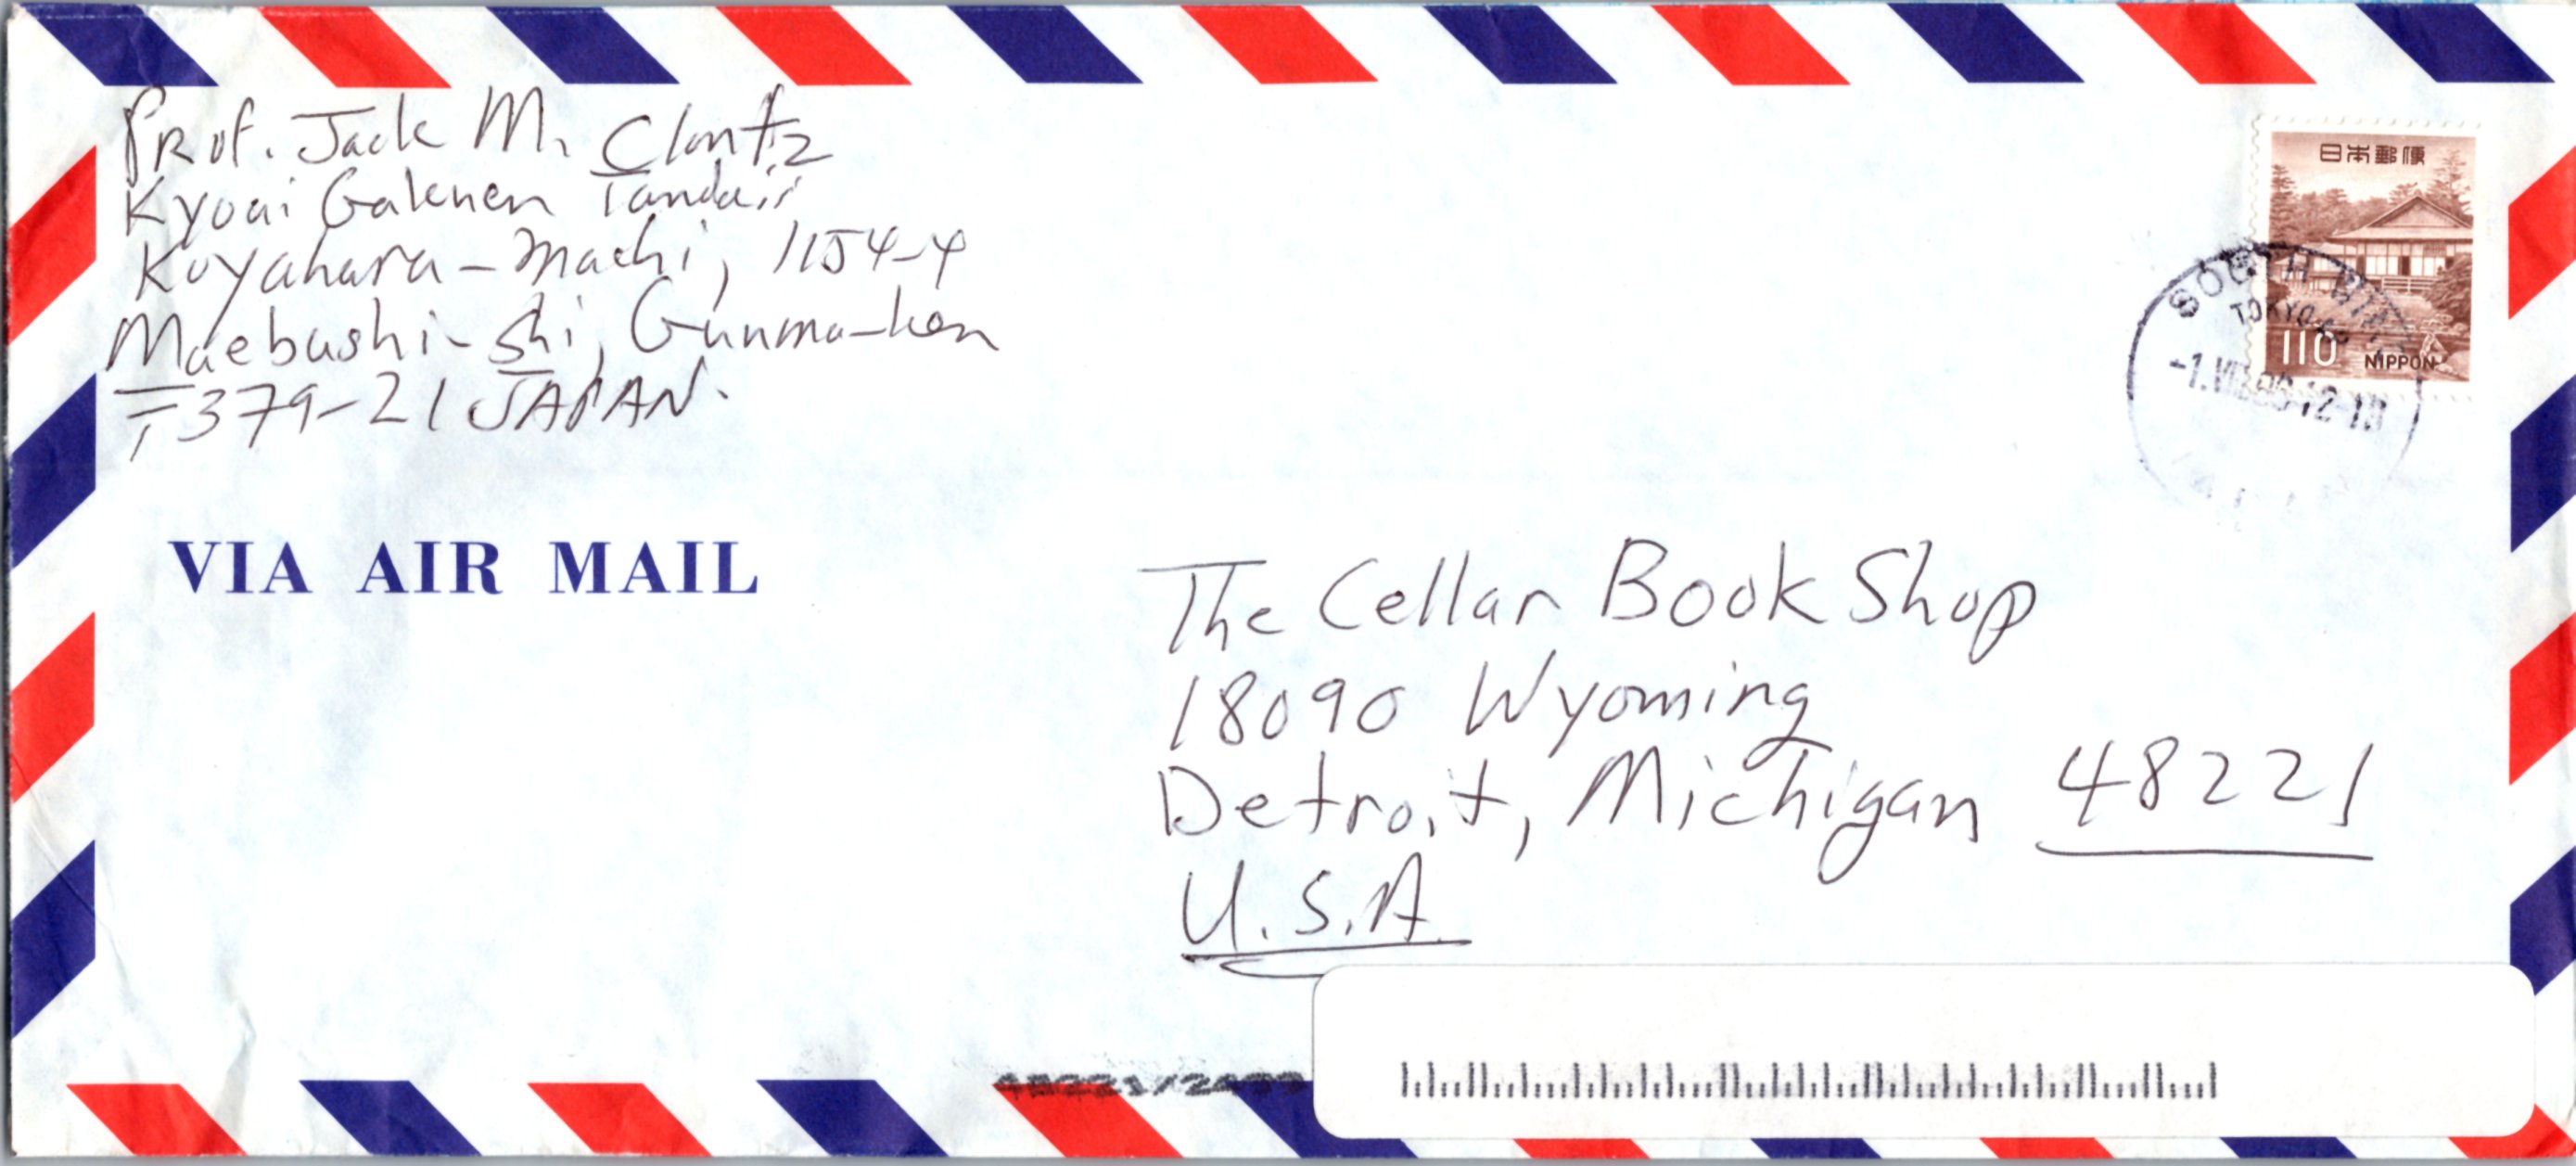 Prof. Jack M. Clontz
Kyoai Gakuen Tandai
Koyahara-machi, 1154-4
Maebashi-shi, Gunma-ken
〒379-21 JAPAN.
日本郵便
110 NIPPON
SOUTH
TOKYO
VIA AIR MAIL
The Cellar Book Shop
18090 Wyoming
Detroit, Michigan 48221
U.S.A.